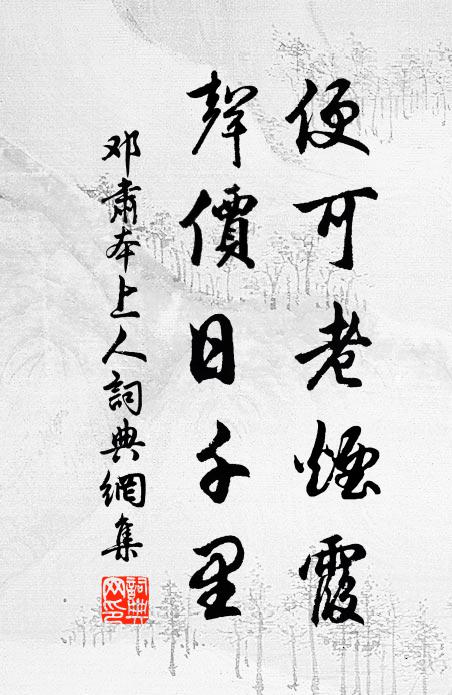 便可老煙霞
聲價日千里
邓肅本上人詞典網集
詞典
网印